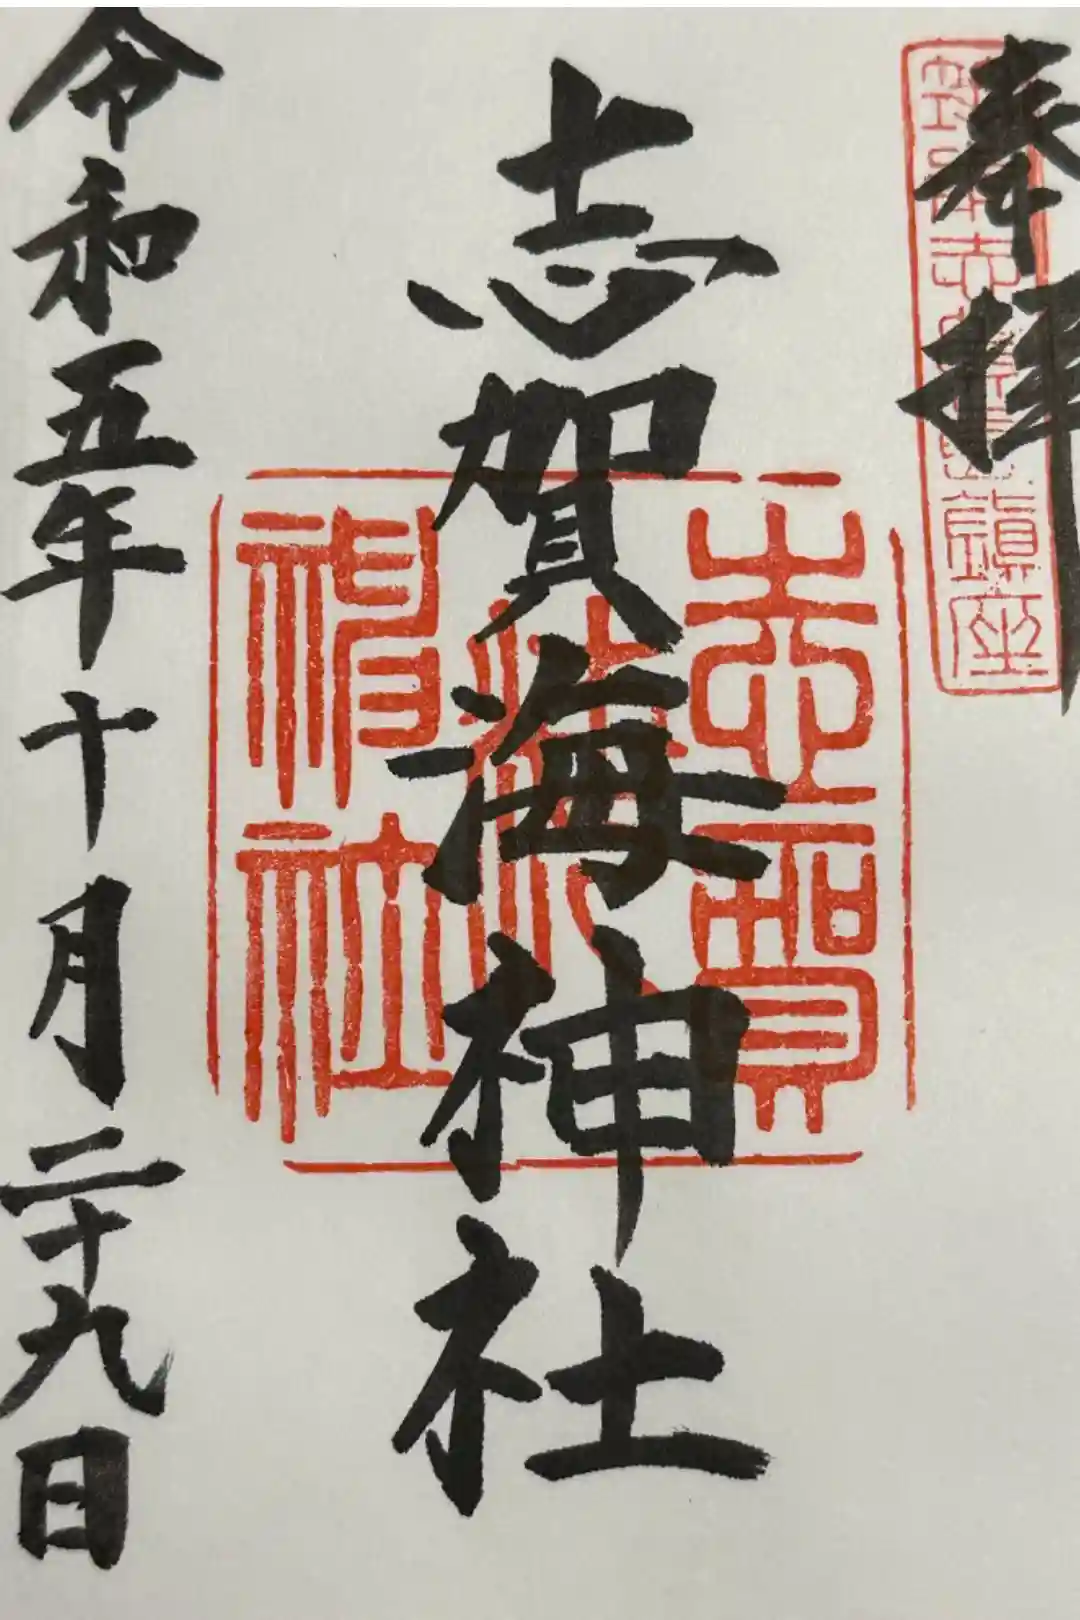 奉拝
筑前志賀島鎮座
志賀海神社
志賀海神社
令和五年十月二十九日